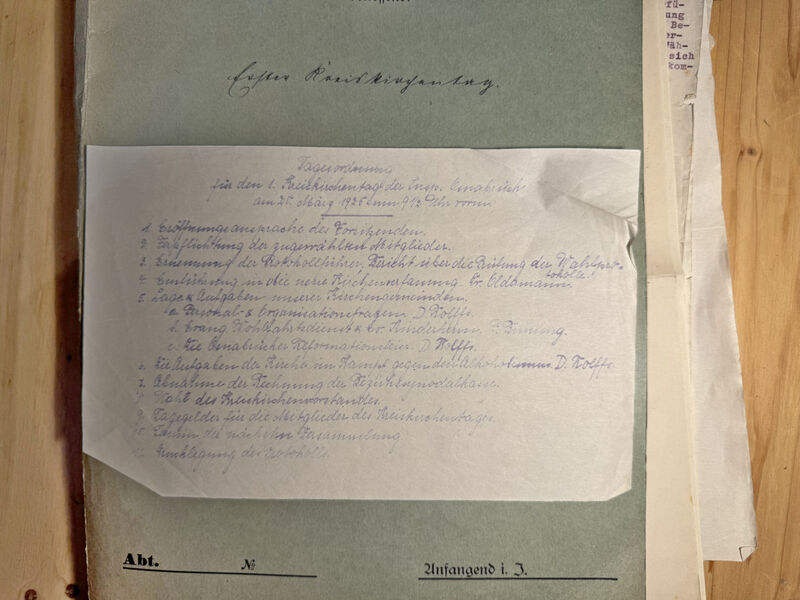 Erster Kreiskirchentag.
Tagesordnung
für den 1. Kreiskirchentag der Insp. Osnabrück
am 25. März 1925 um 9 1/2 Uhr vorm
1. Eröffnungsansprache des Vorsitzenden.
2. Verpflichtung der zugewählten Mitglieder.
3. Ernennung der Protokollführer, Bericht über die Prüfung der Wahlpro-
tokolle.
4. Einführung in die neue Kirchenverfassung.
5. Lage & Aufgaben unserer Kirchengemeinden.
a. Personal- & Organisationsfragen, D. Rolffs
b. Evang. Wohlfahrtsdienst & Kinderheim
c. Die Osnabrücker Reformationsfeier. D. Rolffs.
6. Die Aufgaben der Kirche im Kampf gegen den D. Rolffs
7. Abnahme der Rechnung der Bezirkssynodalkasse.
8. Wahl des Kreiskirchenvorstandes.
9. Tagegelder für die Mitglieder des Kreiskirchentages.
10. Termin der nächsten Versammlung
11. des Protokolls.
Abt.
№
Anfangend i. J.
ung
Be-
er-
sich
kom-